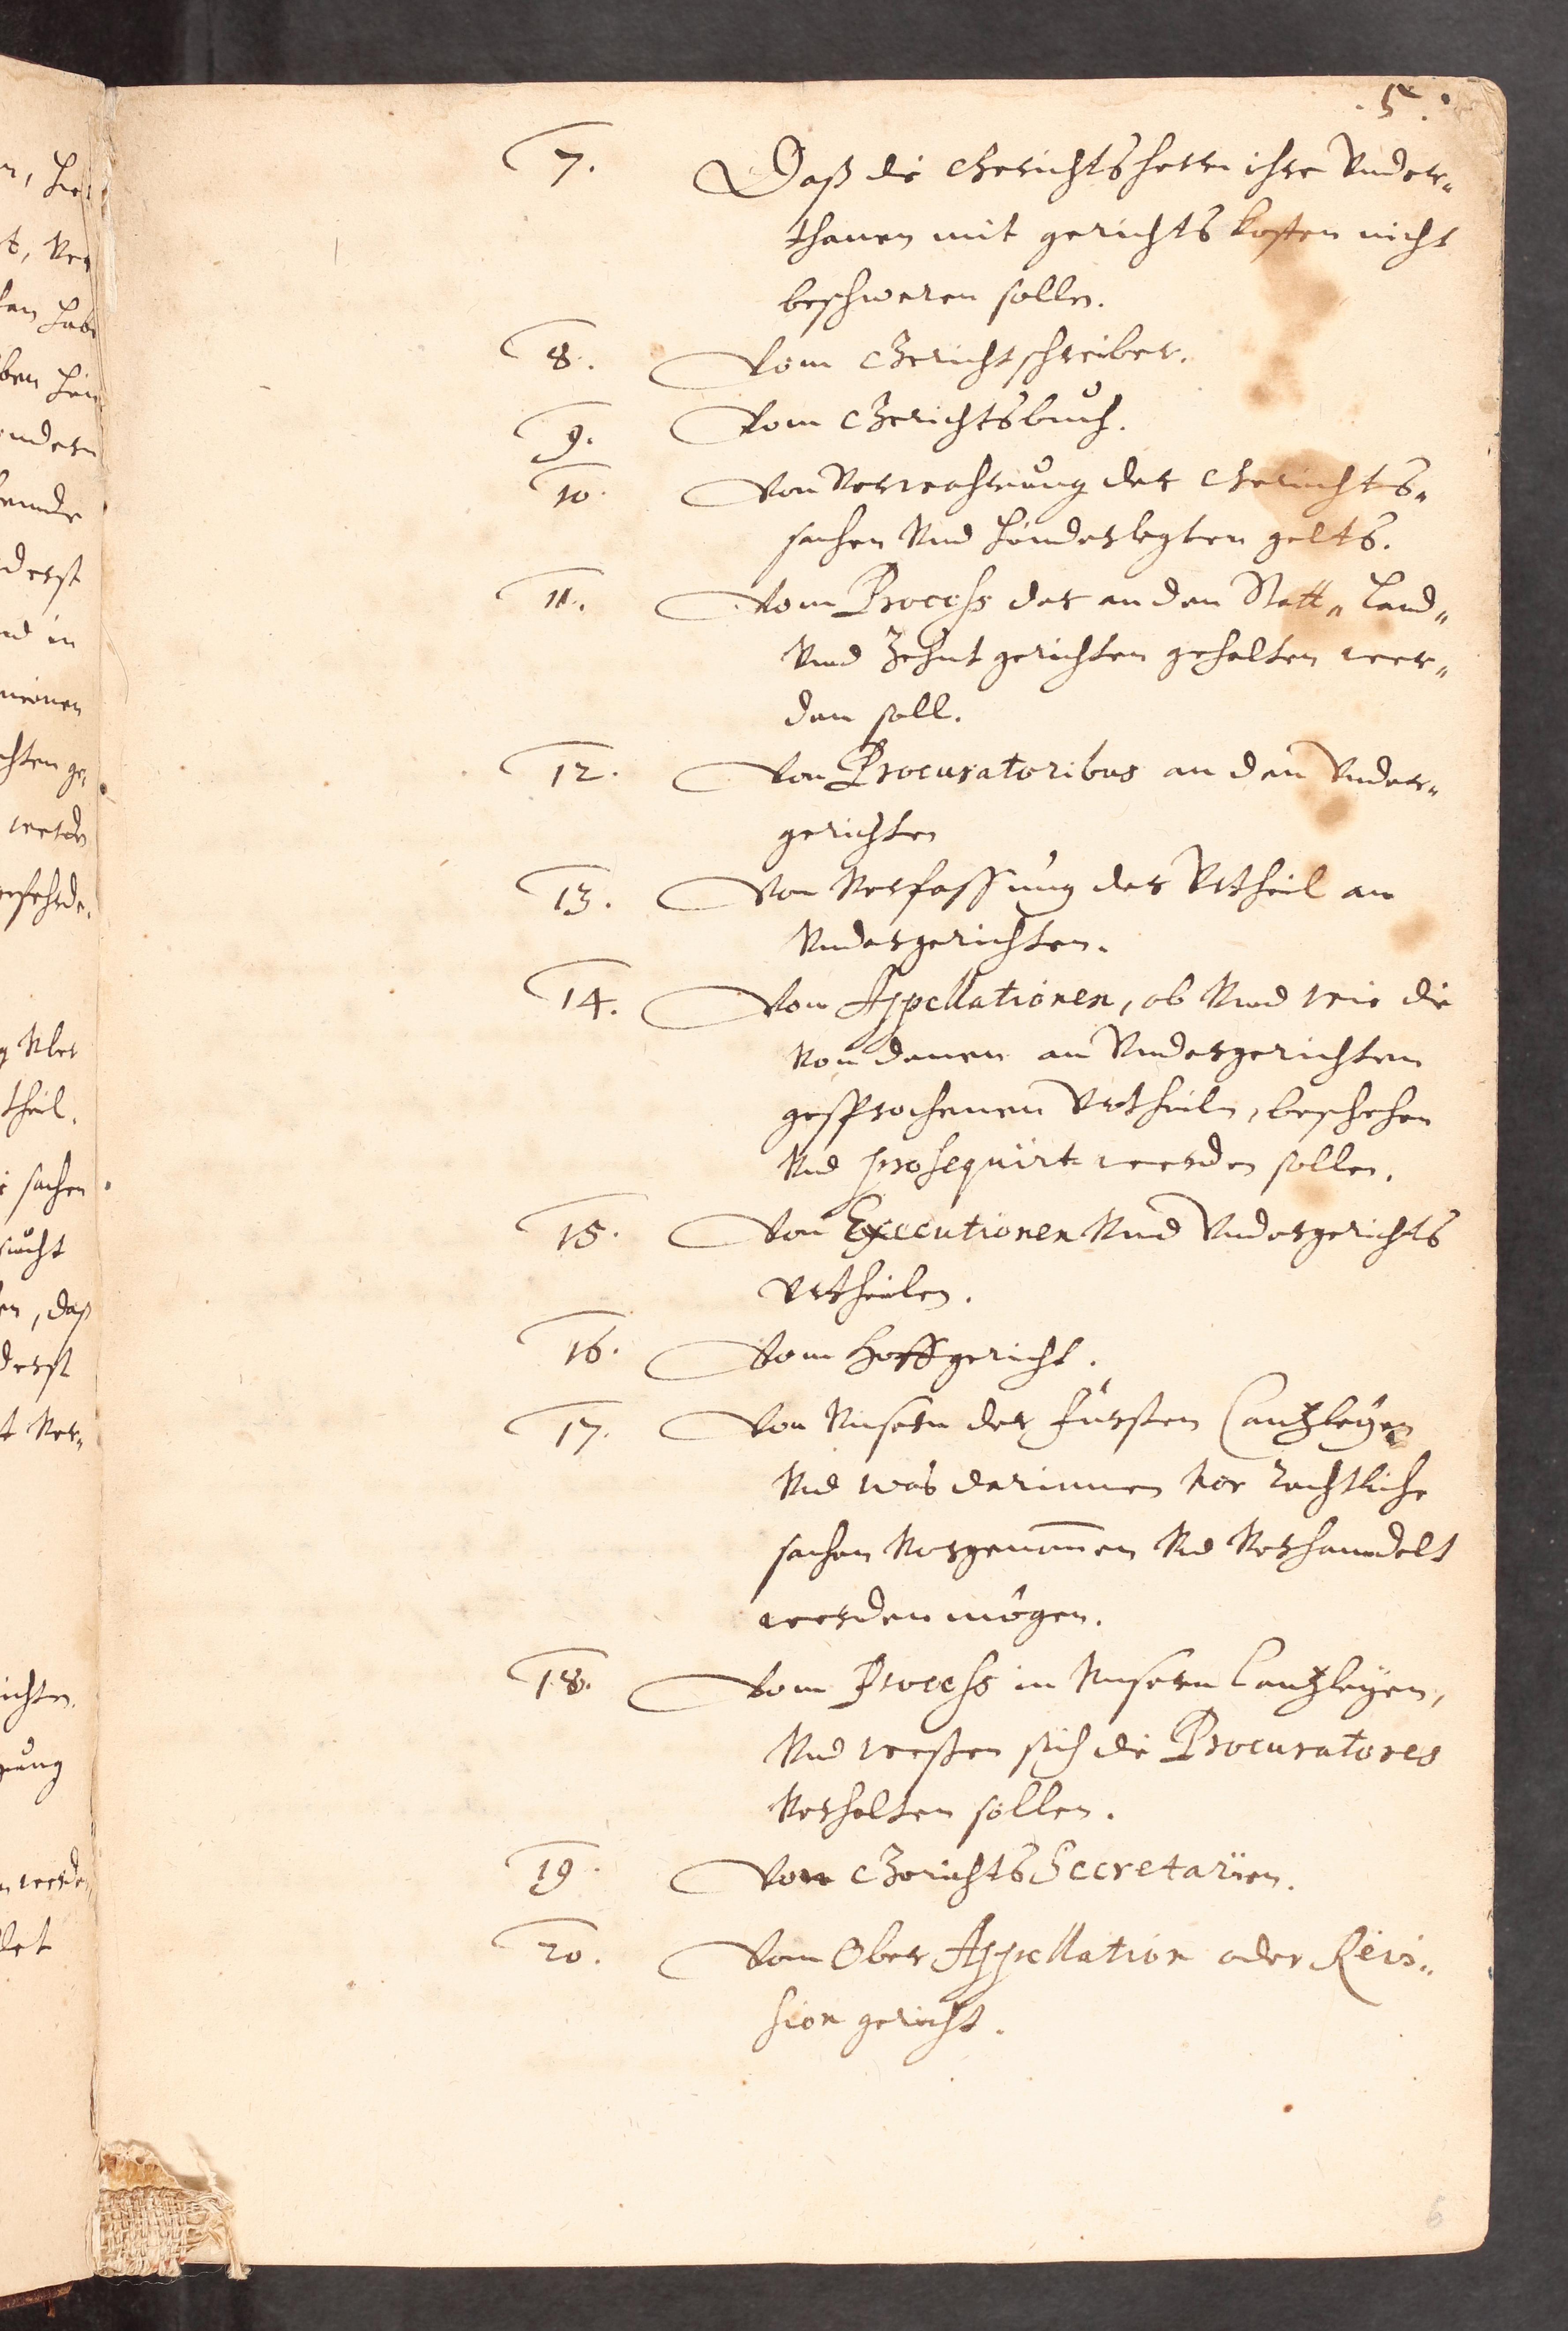 .5.
7. Daß die Gerichtsherrn ihre Vnder-
thanen mit gerichts kosten nicht
beschweren sollen.
8. Vom Gerichtschreiber.
9. Vom Gerichtsbuch.
10. Von Verwahrung der Gerichts-
sachen vnd hinderlegten gelts.
11. Vom Process der an den Statt- Land-
vnd Zehnt gerichten gehalten wer-
den soll.
12. Von Procuratoribus an den Vnder-
gerichten
13. Von Verfassung der Vrtheil an
Vndergerichten.
14. Von Appellationen, ob vnd wie die
von denen an Vndergerichten
gesprochenen Vrtheiln, beschehen
vnd prosequirt werden sollen.
15. Von Executionen vnd Vndergerichts
Vrtheilen.
16. Vom Hoffgericht.
17. Von Vnsern der Fürsten Cantzleyen
vnd was darinnen vor rechtliche
sachen vorgenommen vnd verhandelt
werden mögen.
18. Vom Process in Vnsern Cantzleyen,
vnd weßen sich die Procuratores
verhalten sollen.
19. Von Gerichts Secretarien.
20. Vom Ober Appellation oder Revi-
sion gericht.
6